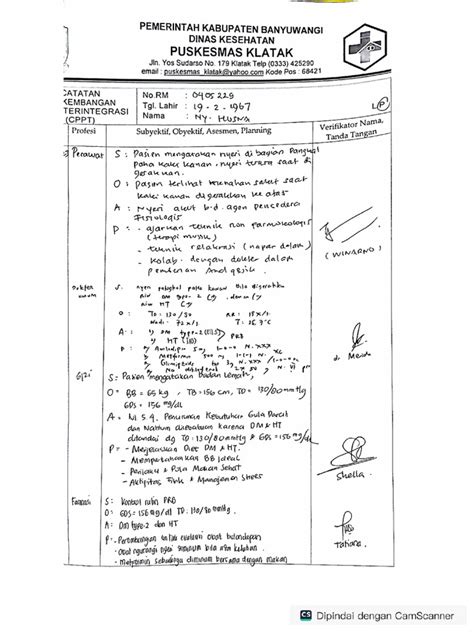 PEMERINTAH KABUPATEN BANYUWANGI
DINAS KESEHATAN
PUSKESMAS KLATAK
Jln. Yos Sudarso No. 179 Klatak Telp (0333) 425290
email : puskesmas_klatak@yahoo.com Kode Pos : 68421
CATATAN
KEMBANGAN
TERINTEGRASI
(CPPT)
No.RM : 0405229
Tgl. Lahir : 19-2-1967
Nama : NY. HUSNA
L P
Profesi
Subyektif, Obyektif, Asesmen, Planning
Verifikator Nama,
Tanda Tangan
Perawat
S : Pasien mengatakan nyeri di bagian pangkal
paha kaki kanan. nyeri terasa saat di
gerakkan.
O : pasien terlihat menahan sakit saat
kaki kanan digerakkan ke atas
A : nyeri akut b.d. agen pencedera
Fisiologis
P : - ajarkan teknik non farmakologi
(terapi musik)
- teknik relaksasi (napas dalam)
- kolab. dengan dokter dalam
pemberian analgesik.
(WINARNO)
Dokter
umum
S:
O: TD: 130/80 RR: 18x/
Nadi: 72x/
A: DM type-2
HT
PRB
P: Amlodipin
Metformin
Gizi
S = Pasien mengatakan badan lemah,
O = BB = 65 kg, TB = 156 cm, TD = 130/80 mmHg
GDS = 156 mg/dl
A = NI 5.4. Penurunan Kebutuhan Gula
dan Natrium disebabkan karena DM & HT
ditandai dg TD: 130/80 mmHg & GDS = 156 mg/dl
P = - Menjelaskan Diet DM & HT.
- Mempertahankan BB ideal
- Perilaku & Pola Makan Sehat
- Aktifitas Fisik & Manajemen Stress
Shella
Farmasi
S: Kontrol rutin PRB
O: GDS = 156 mg/dl TD: 130/80 mmHg.
A: DM type-2 dan HT
P: - obat
- Obat nyeri diminum bila
- Metformin sebaiknya diminum bersama dengan makan
Tatiara.
CS Dipindai dengan CamScanner